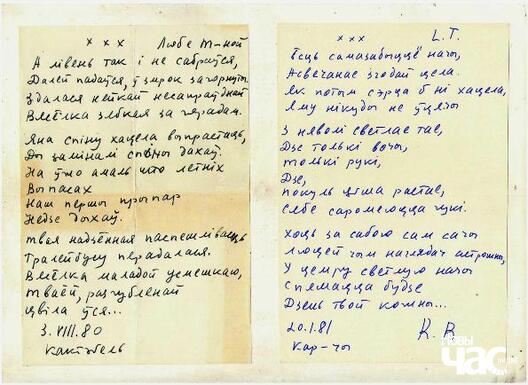 x x x Любе Т-ной
А лівень так і не сабраўся,
Далей падаўся, ў змрок загорнуты.
Здалася нейкай несапраўднай
Вясёлка зябкая за
Яна спіну хацела выпрастаць,
Ды замiналі спіны дахаў.
На ўжо амаль што летніх
Выпасах
Наш першы прыпар
Недзе дыхаў.
твая надзённая паспешлівасць
Тралейбусу перадалася.
Вясёлка маладой усмешкаю,
тваёй, разгубленай
цвіла ўся...
3.VIII.80
Кактэбель
x x x L.T.
Ёсць самазабыццё начы,
Асвечанае згодай цела.
Як потым сэрца б ні хацела,
Яму нікуды не ўцячы
З няволі светлае тае,
Дзе толькі вочы,
толькі рукі,
Дзе,
покуль ціша растае,
Сябе саромеюцца гукі.
Хоць за сабою сам сачы
Люцей чым наглядач астрожны,
У цемру светлую начы
Спяшацца будзе
Дзень твой кожны...
20.1.81 R. B
Кар-чы
Новы
час